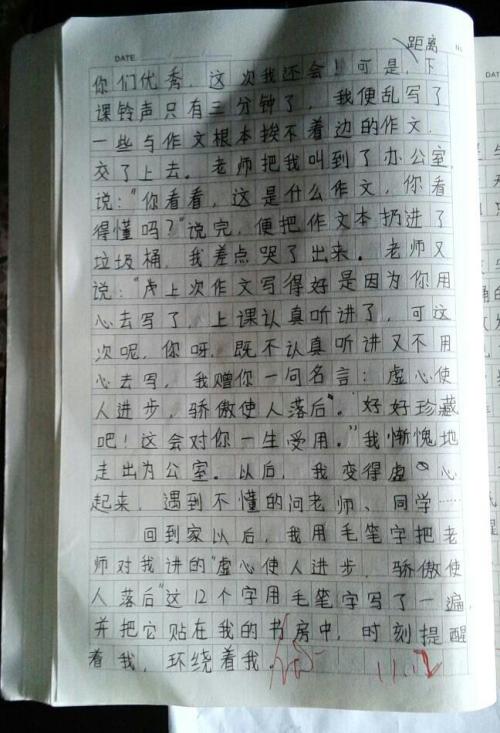 距离
DATE
你们优秀，这次我还会！可是，下
课铃声只有三分钟了，我便乱写了
一些与作文根本挨不着边的作文，
交了上去。老师把我叫到了办公室，
说："你看看，这是什么作文，你看
得懂吗？"说完，便把作文本扔进了
垃圾桶，我差点哭了出来。老师又
说："上次作文写得好是因为你用
心去写了，上课认真听讲了，可这
次呢，你呀，既不认真听讲又不用
心去写，我赠你一句名言：虚心使
人进步，骄傲使人落后"。好好珍藏
吧！这会对你一生受用。"我惭愧地
走出为公室。以后，我变得虚心
起来，遇到不懂的问老师、同学……
回到家以后，我用毛笔字把老
师对我讲的"虚心使人进步，骄傲使
人落后"这12个字用毛笔字写了一遍，
并把它贴在我的书房中，时刻提醒
着我，环绕着我。
11.12
DATE